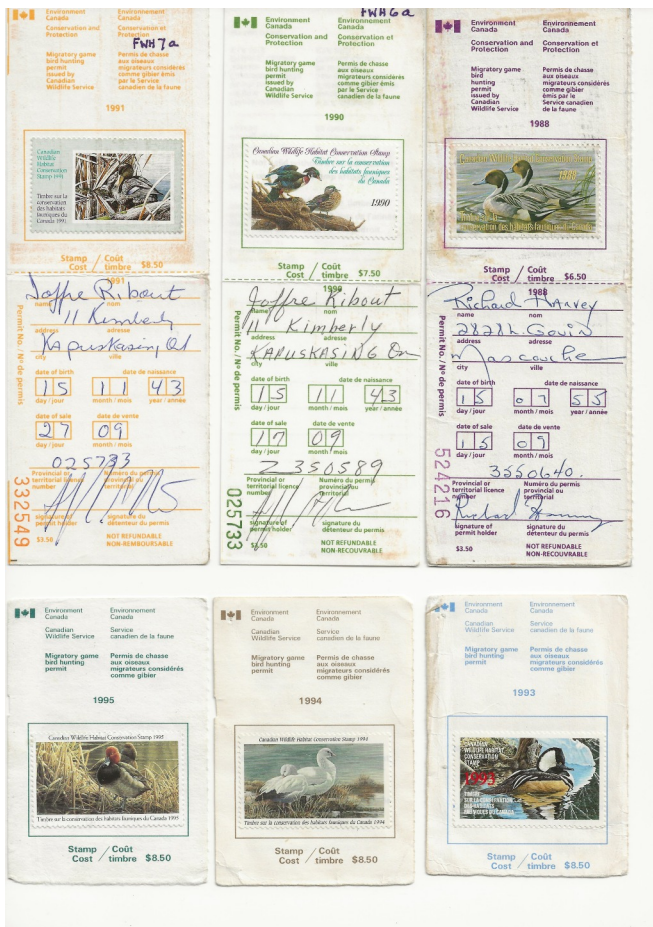 Environment Canada
Environnement Canada
Conservation and Protection
Conservation et Protection
FWH7a
Migratory game bird hunting permit issued by Canadian Wildlife Service
Permis de chasse aux oiseaux migrateurs considérés comme gibier émis par le Service canadien de la faune
1991
Canadian Wildlife Habitat Conservation Stamp 1991
Timbre sur la conservation des habitats fauniques du Canada 1991
Stamp Cost / Coût timbre $8.50
1991
Joffre Ribout
name nom
11 Kimberly
address adresse
Kapuskasing
city ville
Permit No. / Nº de permis
332549
date of birth date de naissance
15 11 43
day / jour month / mois year / année
date of sale date de vente
27 09
day / jour month / mois
025733
Provincial or territorial licence number
Numéro du permis provincial ou territorial
signature of permit holder
signature du détenteur du permis
$3.50
NOT REFUNDABLE
NON-REMBOURSABLE
FWH6a
Environment Canada
Environnement Canada
Conservation and Protection
Conservation et Protection
Migratory game bird hunting permit issued by Canadian Wildlife Service
Permis de chasse aux oiseaux migrateurs considérés comme gibier émis par le Service canadien de la faune
1990
Canadian Wildlife Habitat Conservation Stamp
Timbre sur la conservation des habitats fauniques du Canada
1990
Stamp Cost / Coût timbre $7.50
1990
Joffre Ribout
name nom
11 Kimberly
address adresse
KAPUSKASING On
city ville
Permit No. / Nº de permis
025733
date of birth date de naissance
15 11 43
day / jour month / mois year / année
date of sale date de vente
17 09
day / jour month / mois
Z350589
Provincial or territorial licence number
Numéro du permis provincial ou territorial
signature of permit holder
signature du détenteur du permis
$3.50
NOT REFUNDABLE
NON-RECOUVRABLE
Environment Canada
Environnement Canada
Conservation and Protection
Conservation et Protection
Migratory game bird hunting permit issued by Canadian Wildlife Service
Permis de chasse aux oiseaux migrateurs considérés comme gibier émis par le Service canadien de la faune
1988
1988
Stamp Cost / Coût timbre $6.50
1988
Richard Harvey
name nom
2828 L. Gouin
address adresse
Mascouche
city ville
Permit No. / Nº de permis
524216
date of birth date de naissance
15 07 55
day / jour month / mois year / année
date of sale date de vente
15 09
day / jour month / mois
3550640.
Provincial or territorial licence number
Numéro du permis provincial ou territorial
Richard Harvey
signature of permit holder
signature du détenteur du permis
$3.50
NOT REFUNDABLE
NON-RECOUVRABLE
Environment Canada
Environnement Canada
Canadian Wildlife Service
Service canadien de la faune
Migratory game bird hunting permit
Permis de chasse aux oiseaux migrateurs considérés comme gibier
1995
Canadian Wildlife Habitat Conservation Stamp 1995
Timbre sur la conservation des habitats fauniques du Canada 1995
Stamp Cost / Coût timbre $8.50
Environment Canada
Environnement Canada
Canadian Wildlife Service
Service canadien de la faune
Migratory game bird hunting permit
Permis de chasse aux oiseaux migrateurs considérés comme gibier
1994
Canadian Wildlife Habitat Conservation Stamp 1994
Timbre sur la conservation des habitats fauniques du Canada 1994
Stamp Cost / Coût timbre $8.50
Environment Canada
Environnement Canada
Canadian Wildlife Service
Service canadien de la faune
Migratory game bird hunting permit
Permis de chasse aux oiseaux migrateurs considérés comme gibier
1993
CANADIAN WILDLIFE HABITAT CONSERVATION STAMP
1993
TIMBRE SUR LA CONSERVATION DES HABITATS FAUNIQUES DU CANADA
Stamp Cost / Coût timbre $8.50